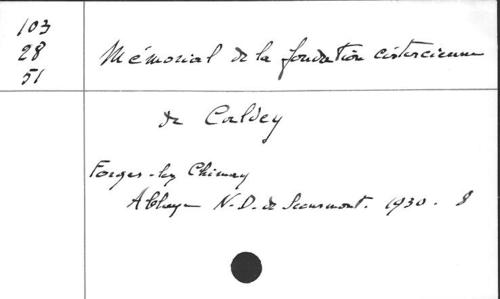 103
28
51
Mémorial de la fondation cistercienne
de Caldey
Forges-lez Chimay
Abbaye N.-D. de Scourmont. 1930. 8